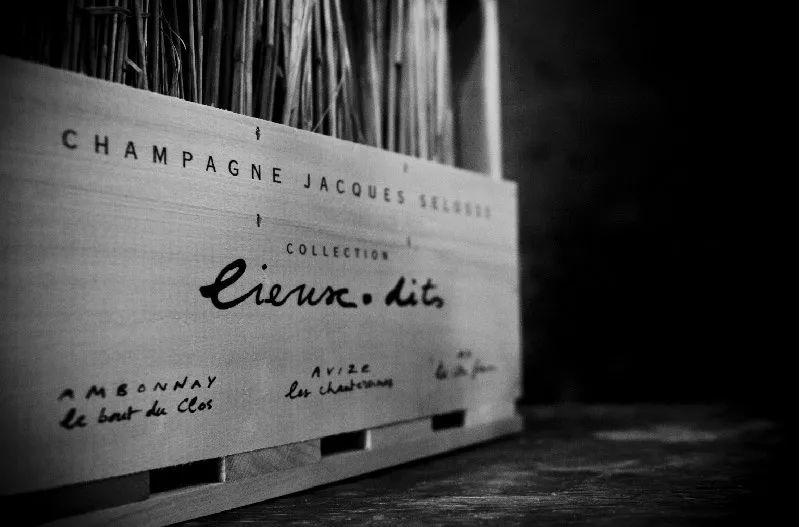 CHAMPAGNE JACQUES SELOSSE
COLLECTION
lieux. dits
AMBONNAY
le bout du Clos
AVIZE
les chantereines